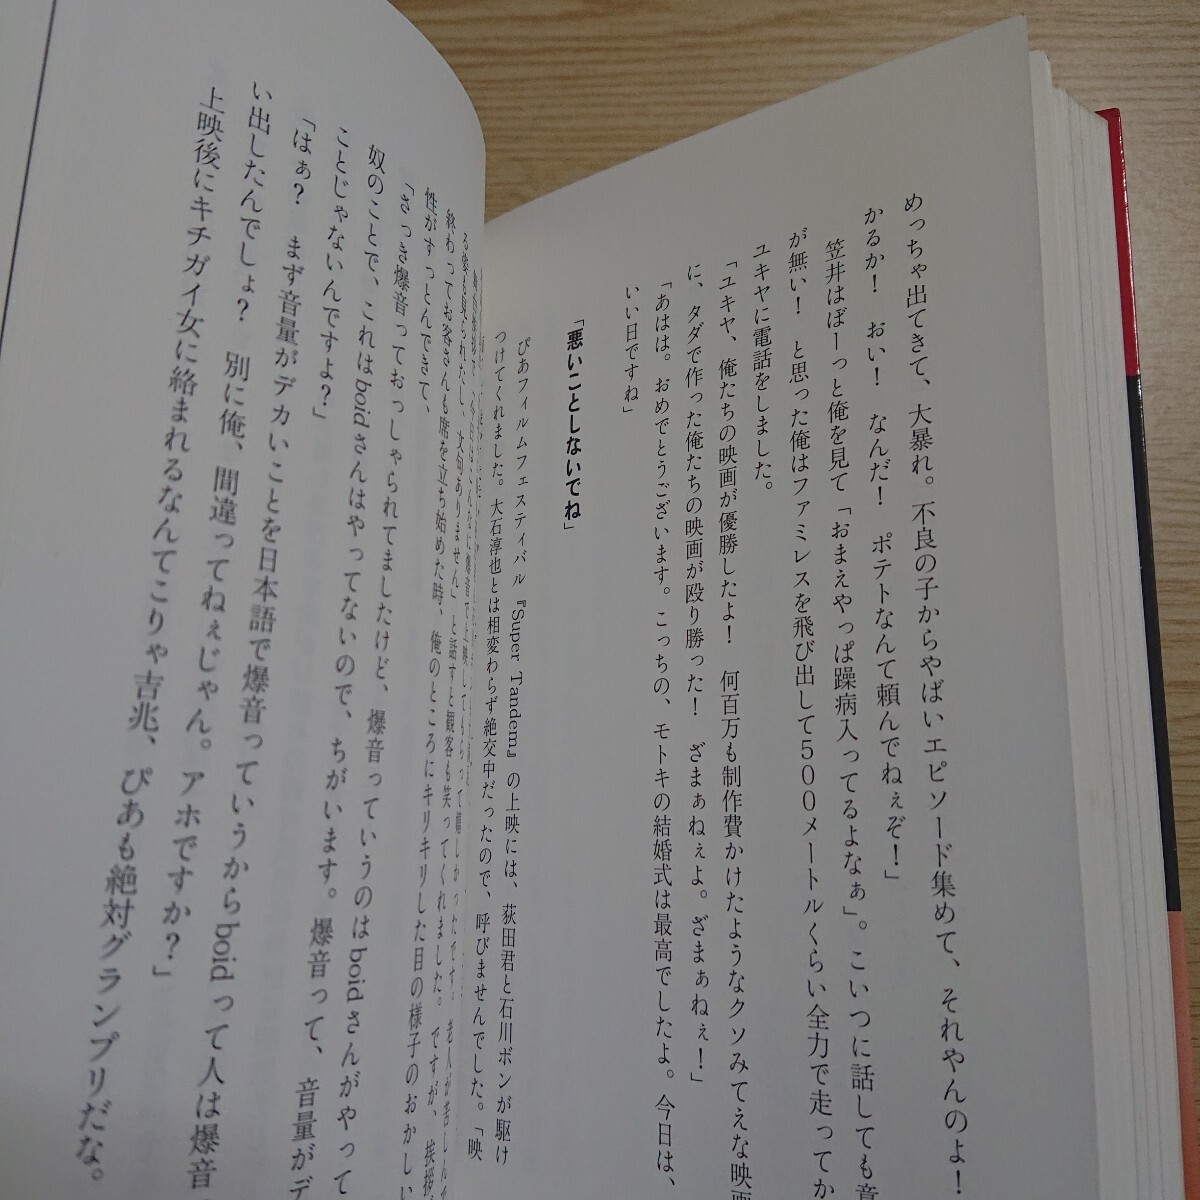 めっちゃ出てきて、大暴れ。不良の子からやばいエピソード集めて、それやんのよ!
かるか! おい! なんだ! ポテトなんて頼んでねぇぞ!」
笠井はぼーっと俺を見て「おまえやっぱ躁病入ってるよなぁ」。こいつに話しても意
が無い! と思った俺はファミレスを飛び出して500メートルくらい全力で走ってか
ユキヤに電話をしました。
「ユキヤ、俺たちの映画が優勝したよ! 何百万も制作費かけたようなクソみてえな映画
に、タダで作った俺たちの映画が殴り勝った! ざまぁねぇよ。ざまぁねぇ!」
「あはは。おめでとうございます。こっちの、モトキの結婚式は最高でしたよ。今日は、
いい日ですね」
「悪いことしないでね」
ぴあフィルムフェスティバル『Super Tandem』の上映には、荻田君と石川ボンが駆け
つけてくれました。大石淳也とは相変わらず絶交中だったので、呼びませんでした。「映
る姿も見られたし、文句ありません」と話すと観客も笑ってくれました。ですが、挨拶
終わってお客さんも席を立ち始めた時、俺のところにキリキリした目の様子のおかしい
性がすっとんできて、
「さっき爆音っておっしゃられてましたけど、爆音っていうのはboidさんがやって
奴のことで、これはboidさんはやってないので、ちがいます。爆音って、音量がデ
ことじゃないんですよ?」
「はぁ? まず音量がデカいことを日本語で爆音っていうからboidって人は爆音
い出したんでしょ? 別に俺、間違ってねぇじゃん。アホですか?」
上映後にキチガイ女に絡まれるなんてこりゃ吉兆、ぴあも絶対グランプリだな。